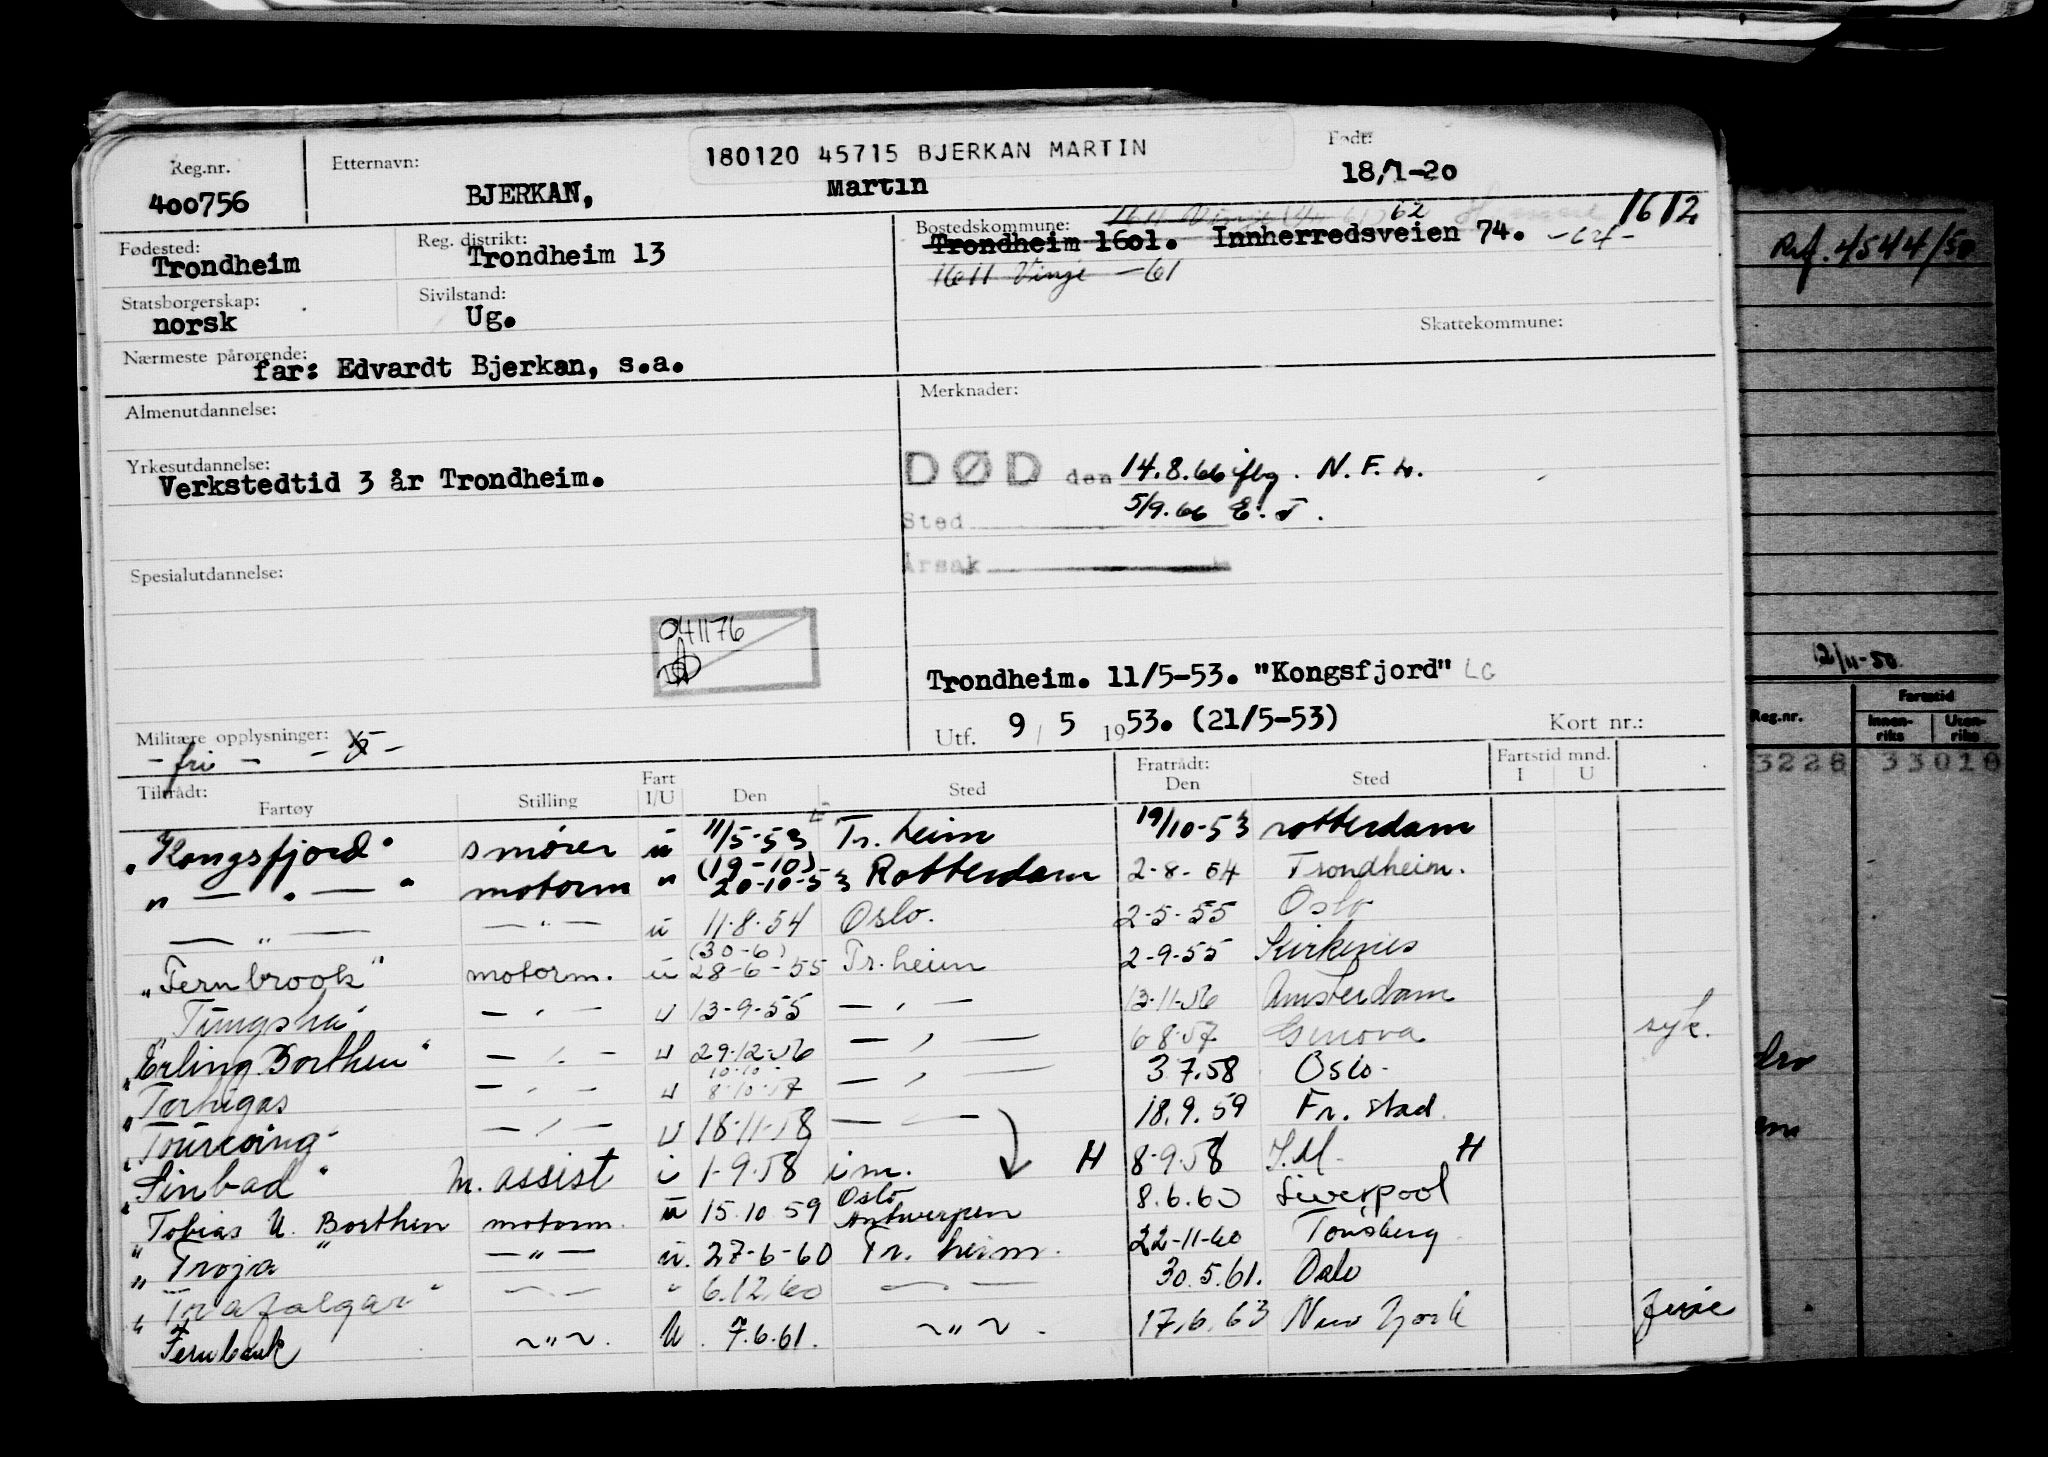 180120 45715 BJERKAN MARTIN
Reg.nr. Etternavn: Født:
400756 BJERKAN, Martin 18/1-20
Fødested: Reg. distrikt: Bostedskommune: 62 1612
Trondheim Trondheim 13 Trondheim 1601. Innherredsveien 74. -64-
1611 Vinje -61
Statsborgerskap: Sivilstand:
norsk Ug.
Skattekommune:
Nærmeste pårørende:
far: Edvardt Bjerkan, s.a.
Almenutdannelse: Merknader:
Yrkesutdannelse:
Verkstedtid 3 år Trondheim.
DØD den 14.8.66 iflg. N.F.
Sted 5/9.66 E.T.
Årsak
Spesialutdannelse:
041176
Trondheim. 11/5-53. "Kongsfjord" LG
Militære opplysninger:
- fri -
Utf. 9 / 5 1953. (21/5-53) Kort nr.:
Tiltrådt: Fratrådt: Fartstid mnd.
Fartøy Stilling Fart I/U Den Sted Den Sted I U
"Kongsfjord" smører u 11/5-53 Tr.heim 19/10-53 rotterdam
" — " — " motorm " (19-10) 20-10-53 Rotterdam 2-8-54 Trondheim.
— " — — " — u 11-8-54 Oslo. 2-5-55 Oslo
"Fernbrook" motorm. u (30-6) 28-6-55 Tr.heim 2-9-55 Kirkenes
"Tungsha" — " — u 13-9-55 — " — 13-11-56 Amsterdam
"Erling Borthen" — " — u 29-12-56 — " — 6-8-57 Genova syk.
"Torhigas — " — u 10-10- 8-10-57 — " — 3.7.58 Oslo.
"Tourcoing" — " — u 18-11-58 — " — 18.9.59 Fr.stad.
"Sinbad" M. assist i 1-9-58 i m. H 8-9-58 I.M. H
"Tobias U. Borthen" motorm. u 15.10.59 Oslo Antwerpen 8.6.60 Liverpool
"Troja — " — u. 27-6-60 Tr. heim. 22-11-60 Tønsberg
"Trafalgar" — " — " 6.12.60 — " — 30.5.61. Oslo
Fernbank ~ " ~. U. 7.6.61. ~ " ~. 17.6.63 New York ferie
Ref. 4544/50
12/11-50.
Reg.nr. Fartstid
Innen-riks Uten-riks
3228 33010